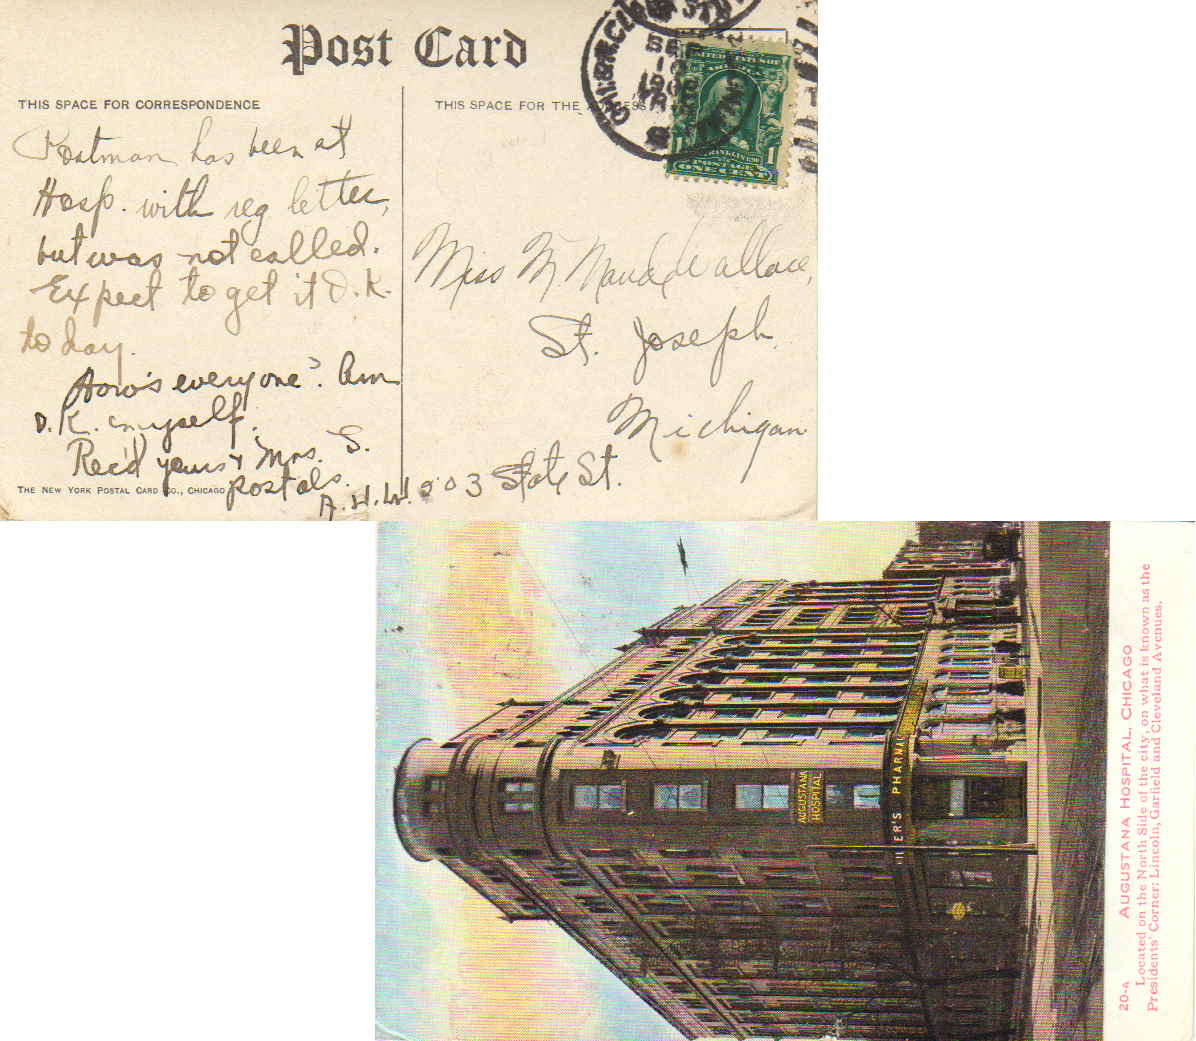 Post Card
THIS SPACE FOR CORRESPONDENCE
THIS SPACE FOR THE ADDRESS
UNITED STATES OF
AMERICA
FRANKLIN
1 POSTAGE 1
ONE CENT
Postman has been at
Hosp. with reg letter,
but was not called.
Expect to get it O.K.
to day.
How's everyone? Am
O.K. myself.
Rec'd yours & Mrs. S.
postals.
A.H.W. 03 State St.
Miss M Maude Wallace,
St. Joseph,
Michigan
THE NEW YORK POSTAL CARD CO., CHICAGO
AUGUSTANA
HOSPITAL
PHARMA
20-A AUGUSTANA HOSPITAL, CHICAGO
Located on the North Side of the city, on what is known as the
Presidents' Corner: Lincoln, Garfield and Cleveland Avenues.